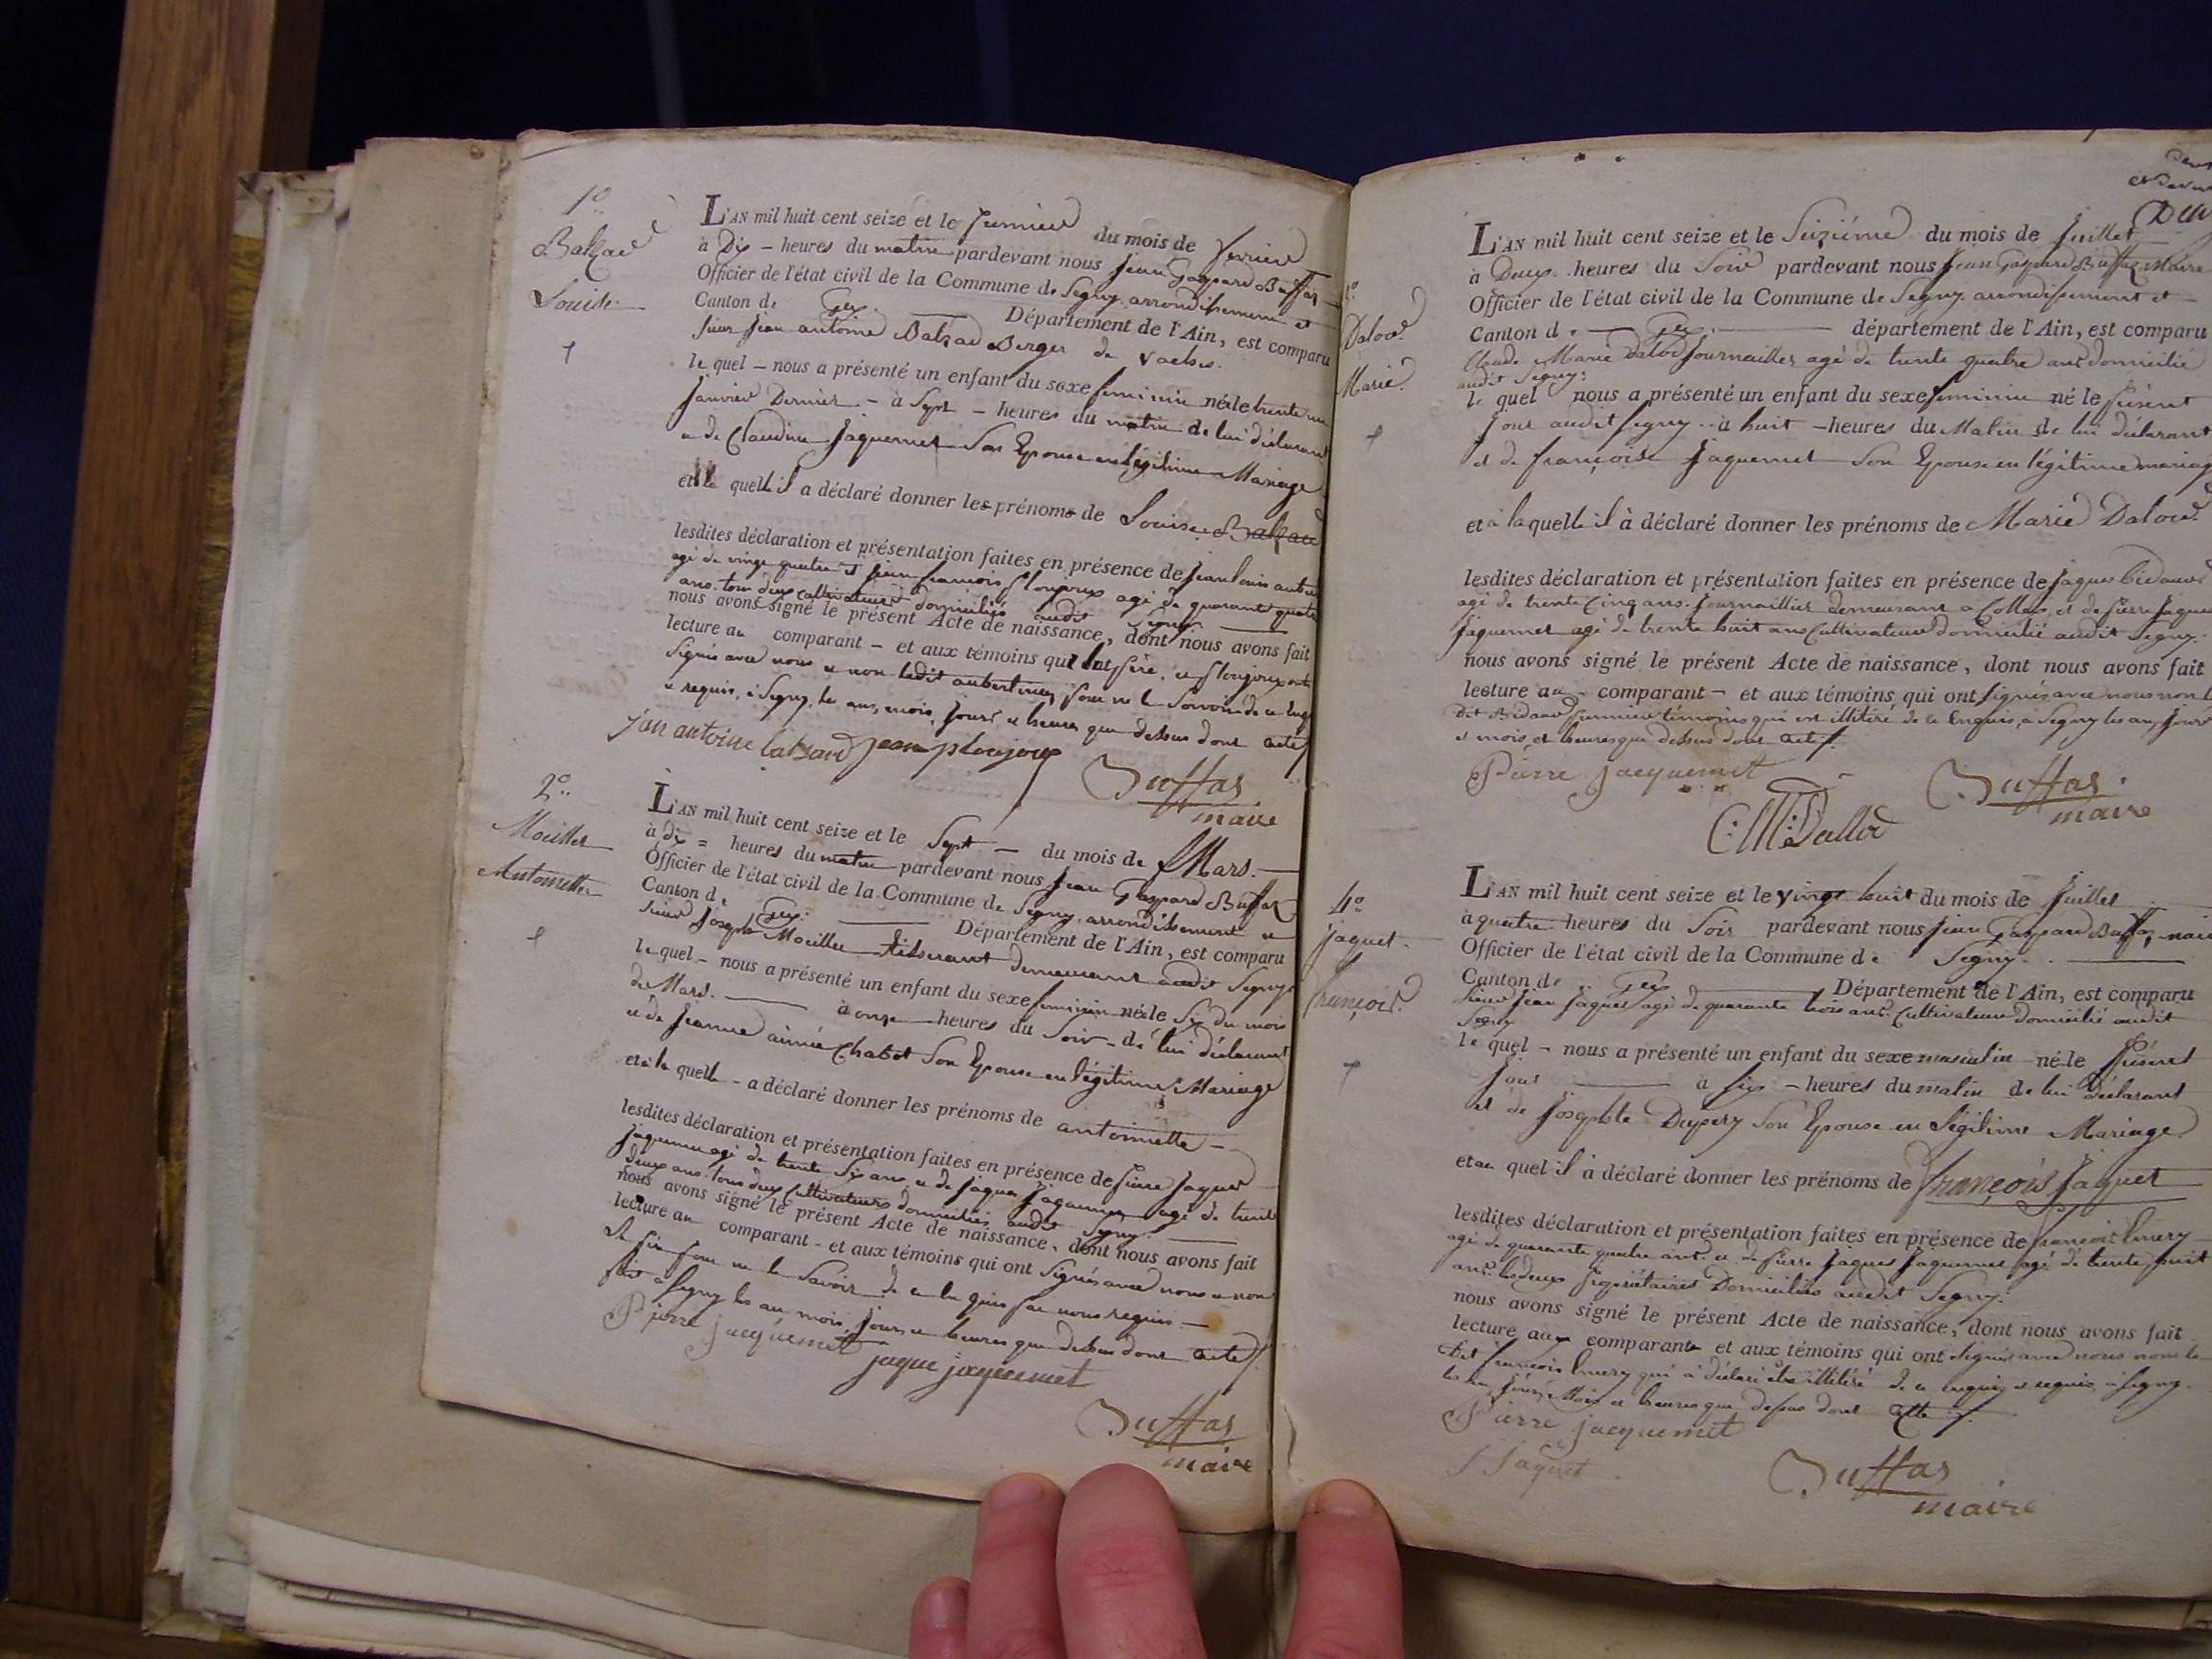 1º
Balzac
Louise
L'AN mil huit cent seize et le premier du mois de fevrier
à Dix - heures du matin pardevant nous Jean Gaspard Buffas
Officier de l'état civil de la Commune de Segny arrondissement et
Canton de Gex. Département de l'Ain, est comparu
sieur Jean antoine Balzac Berger de vaches.
le quel - nous a présenté un enfant du sexe feminin née le trente un
Janvier Dernier - à Sept - heures du matin de lui déclarant
e de Claudine Jaquemet Son Epouse en légitime Mariage
et à la quelle il a déclaré donner les prénoms de Louise Balzac
lesdites déclaration et présentation faites en présence de Jean louis aubert
agé de vingt quatre et Jean francois Plonjoux agé de quarante quatre
ans. tous deux cultivateurs domiciliés audit Segny.
nous avons signé le présent Acte de naissance, dont nous avons fait
lecture au comparant - et aux témoins qui le père, et Plonjoux ont
signés avec nous e non ledit aubert pour ne le Savoir de ce enquis
e requis, à Segny, les ans, mois, jours e heures que dessus dont acte
jan antoine balzac jean plonjoux
Buffas
maire
2º
Moeillet
Antoinette
L'AN mil huit cent seize et le Sept - du mois de Mars.
à dix = heures du matin pardevant nous Jean Gaspard Buffas
Officier de l'état civil de la Commune de Segny arrondissement e
Canton de Gex. Département de l'Ain, est comparu
Sieur Joseph Moeillet tisserant demeurant audit Segny
le quel - nous a présenté un enfant du sexe feminin née le Six du mois
de Mars. à onze heures du Soir - de lui déclarant
e de Jeanne aimée Chabot Son Epouse en légitime Mariage
et à la quelle - a déclaré donner les prénoms de antoinette -
lesdites déclaration et présentation faites en présence de Pierre Jaques
Jaquemet agé de trente Six ans, e de Jaque Jaquemet agé de trente
deux ans. tous deux Cultivateurs domiciliés audit Segny.
nous avons signé le présent Acte de naissance, dont nous avons fait
lecture au comparant - et aux témoins qui ont Signés avec nous e non
le père pour ne le Savoir de ce enquis par nous requis -
fait à Segny les an mois, jours e heures que dessus dont acte
Pierre jacquemet
jaque jaquemet
Buffas
maire
Dalod
Marie
L'AN mil huit cent seize et le Seizième du mois de Juillet
à Deux heures du Soir pardevant nous Jean Gaspard Buffas Maire
Officier de l'état civil de la Commune de Segny arrondissement et -
Canton de Gex. département de l'Ain, est comparu
Claude Marie Dalod Journaillier agé de trente quatre ans domicilié
audit Segny:
le quel nous a présenté un enfant du sexe feminin né le présent
Jour audit Segny - à huit - heures du Matin de lui déclarant
et de françoise Jaquemet Son Epouse en légitime mariage
et à laquelle il à déclaré donner les prénoms de Marie Dalod
lesdites déclaration et présentation faites en présence de Jaques Bidaud
agé de trente Cinq ans. Journaillier demeurant a Collex, et de Pierre Jaques
Jaquemet agé de trente huit ans Cultivateur domicilié audit Segny.
nous avons signé le présent Acte de naissance, dont nous avons fait
lecture au - comparant - et aux témoins qui ont signés avec nous non le
Dit Bidaud premier témoins qui est illitéré de ce Enquis, à Segny les an, Jours
et mois, et heures que dessus dont acte.
Pierre Jacquemet
C: M: Dallod
Buffas
maire
4º
Jaquet
François
L'AN mil huit cent seize et le vingt huit du mois de Juillet
à quatre heures du Soir pardevant nous Jean Gaspard Buffas, maire
Officier de l'état civil de la Commune de Segny.
Canton de Gex Département de l'Ain, est comparu
Sieur Jean Jaquet agé de quarante trois ans Cultivateur domicilié audit
Segny
le quel - nous a présenté un enfant du sexe masculin né le présent
Jour à Six - heures du matin de lui déclarant
et de Josephte Dupery Son Epouse en légitime Mariage
et au quel il à déclaré donner les prénoms de françois Jaquet
lesdites déclaration et présentation faites en présence de françois Emery
agé de quarante quatre ans e de Pierre Jaques Jaquemet agé de trente huit
ans. les deux propriétaires Domiciliés audit Segny.
nous avons signé le présent Acte de naissance, dont nous avons fait
lecture aux comparants et aux témoins qui ont signés avec nous non le
Dit françois Emery qui à déclaré être illitéré de ce enquis e requis à Segny.
les an, Jours, Mois e heures que dessus dont acte
Pierre jacquemet
J Jaquet
Buffas
maire